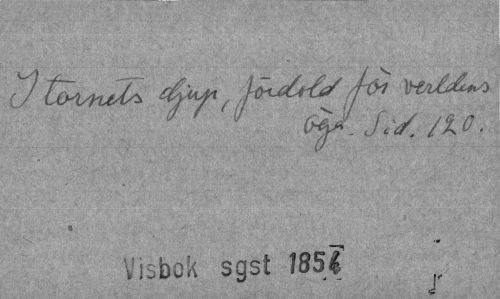 I tornets djup, fördold för verldens
öga. Sid. 120.
Visbok sgst